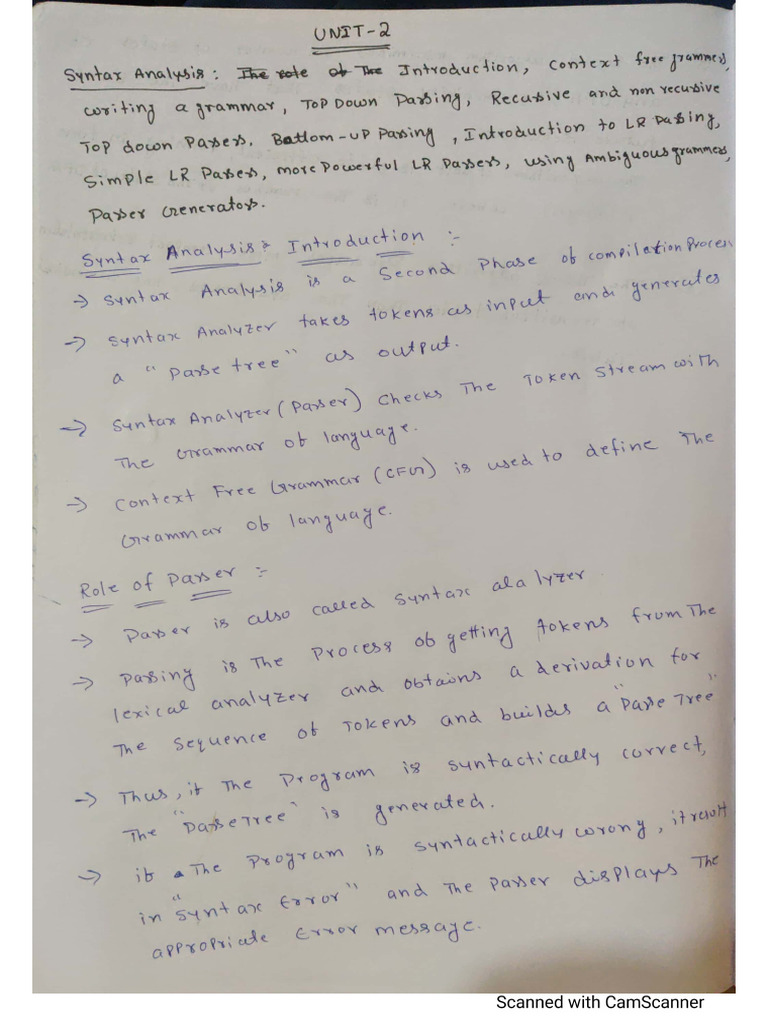 UNIT-2
Syntax Analysis : The role of The Introduction, Context free grammers,
writing a grammar, Top Down Parsing, Recursive and non recursive
Top down Parsers. Bottom-up Parsing, Introduction to LR Parsing,
Simple LR Parsers, more Powerful LR Parsers, using Ambiguous grammers,
Parser Generators.
Syntax Analysis : Introduction :-
→ Syntax Analysis is a Second Phase of compilation Process
→ Syntax Analyzer takes tokens as input and generates
a "Parse tree" as output.
→ Syntax Analyzer (Parser) checks The Token Stream with
The Grammar of language.
→ Context Free Grammar (CFG) is used to define The
Grammar of language.
Role of Parser :-
→ Parser is also called Syntax ala lyzer.
→ Parsing is The Process of getting tokens from The
lexical analyzer and obtains a derivation for
The Sequence of Tokens and builds a "Parse Tree"
→ Thus, if The Program is syntactically correct,
The "Parse Tree" is generated.
→ if The Program is syntactically wrong, it result
in "Syntax Error" and The Parser displays The
appropriate Error message.
Scanned with CamScanner